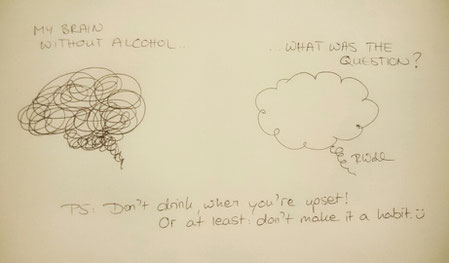 MY BRAIN
WITHOUT ALCOHOL..
...WHAT WAS THE
QUESTION?
PS: Don't drink, when you're upset!
Or at least: don't make it a habit. :)